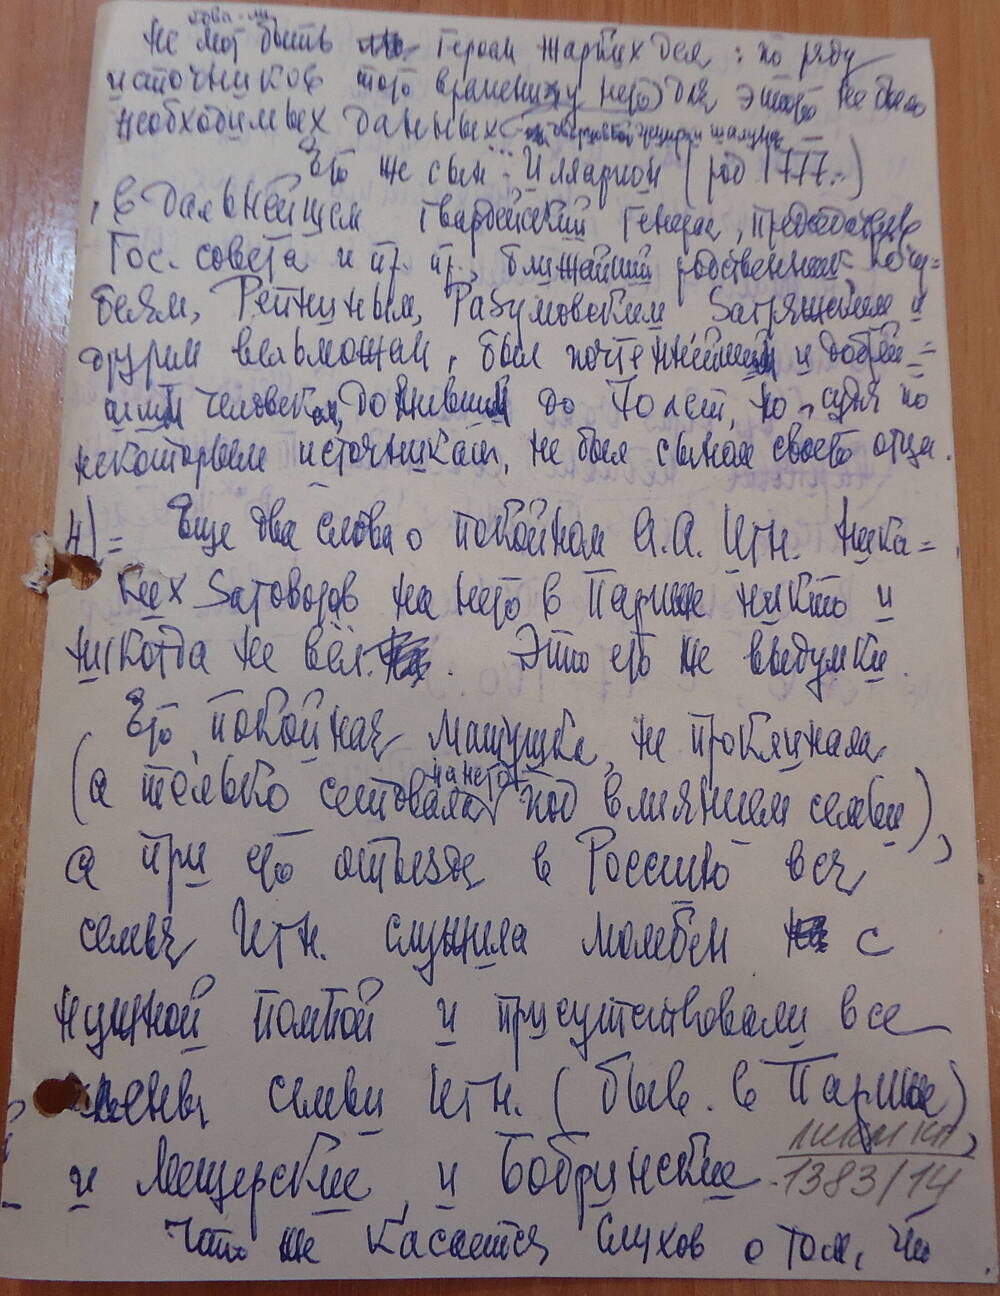 не мог быть героем жарких дел: по ряду
источников того времени у него для этого не было
необходимых данных
Его же сын Илларион (род 1777..)
, в дальнейшем гвардейский генерал, председатель
Гос. совета и пр. пр., ближайший родственник Кочу=
беям, Репниным, Разумовским Загряжским и
другим вельможам, был почтеннейшим и добрей=
шим человеком, дожившим до 70 лет, но, судя по
некоторым источникам, не был сыном своего отца.
4)= Еще два слова о покойном А.А. Игн. Ника=
ких заговоров на него в Париже никто и
никогда не вёл. Это его же выдумки.
Его покойная матушка, не проклинала
(а только сетовала на него под влиянием семьи),
а при его отъезде в Россию вся
семья Игн. служила молебен с
нужной помпой и присутствовали все
члены семьи Игн. (быв. в Париже),
и Мещерские, и Бобринские
ЛИКМ КП
1383/14
Что же касается слухов о том, что